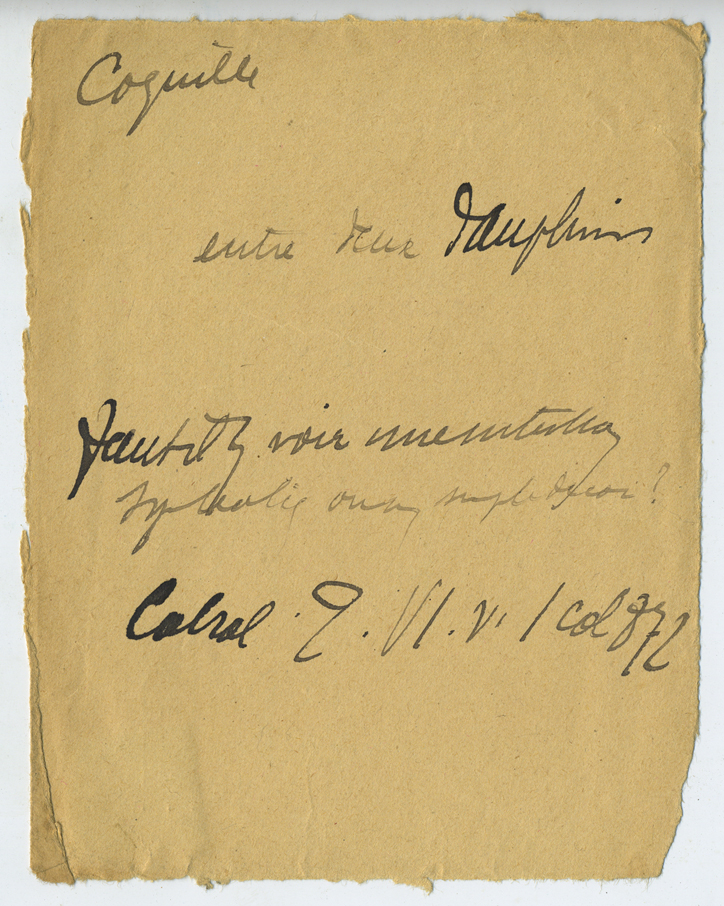 Coquille
entre deux Dauphins
Faut-il y voir une intention
symbolique ou un simple décor?
Cabrol T. VI. v. 1 col